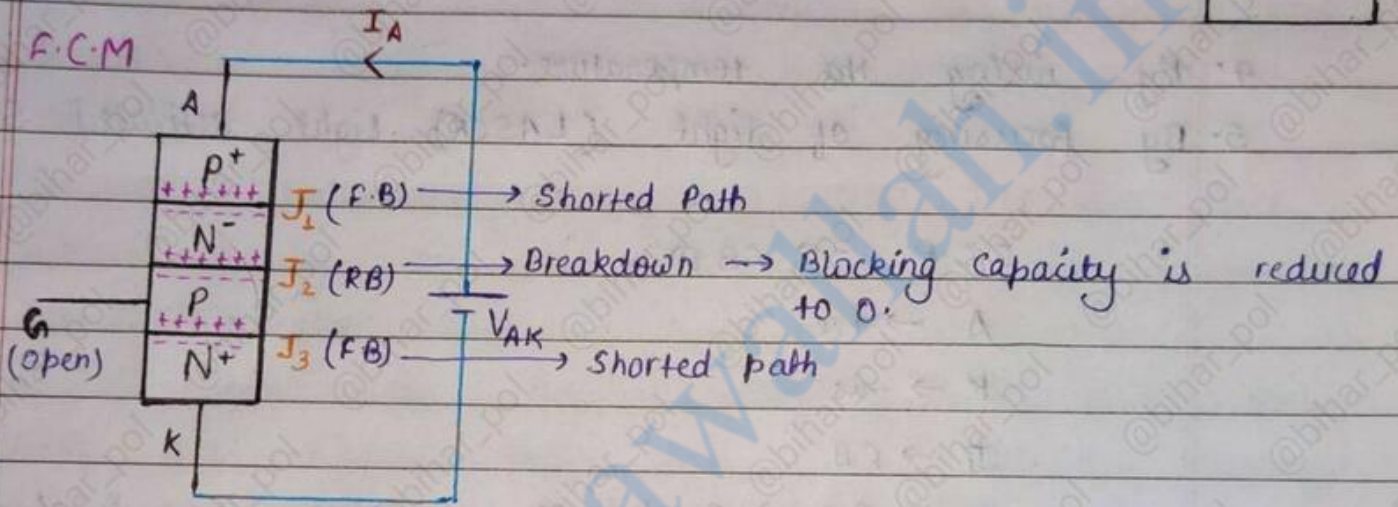 F.C.M
I_A
A
P+
J1 (F.B) → Shorted Path
N-
J2 (RB) → Breakdown → Blocking Capacity is reduced
to 0.
P
G
(open)
V_AK
J3 (FB) → Shorted path
N+
K
@bihar_pol
awallah.in